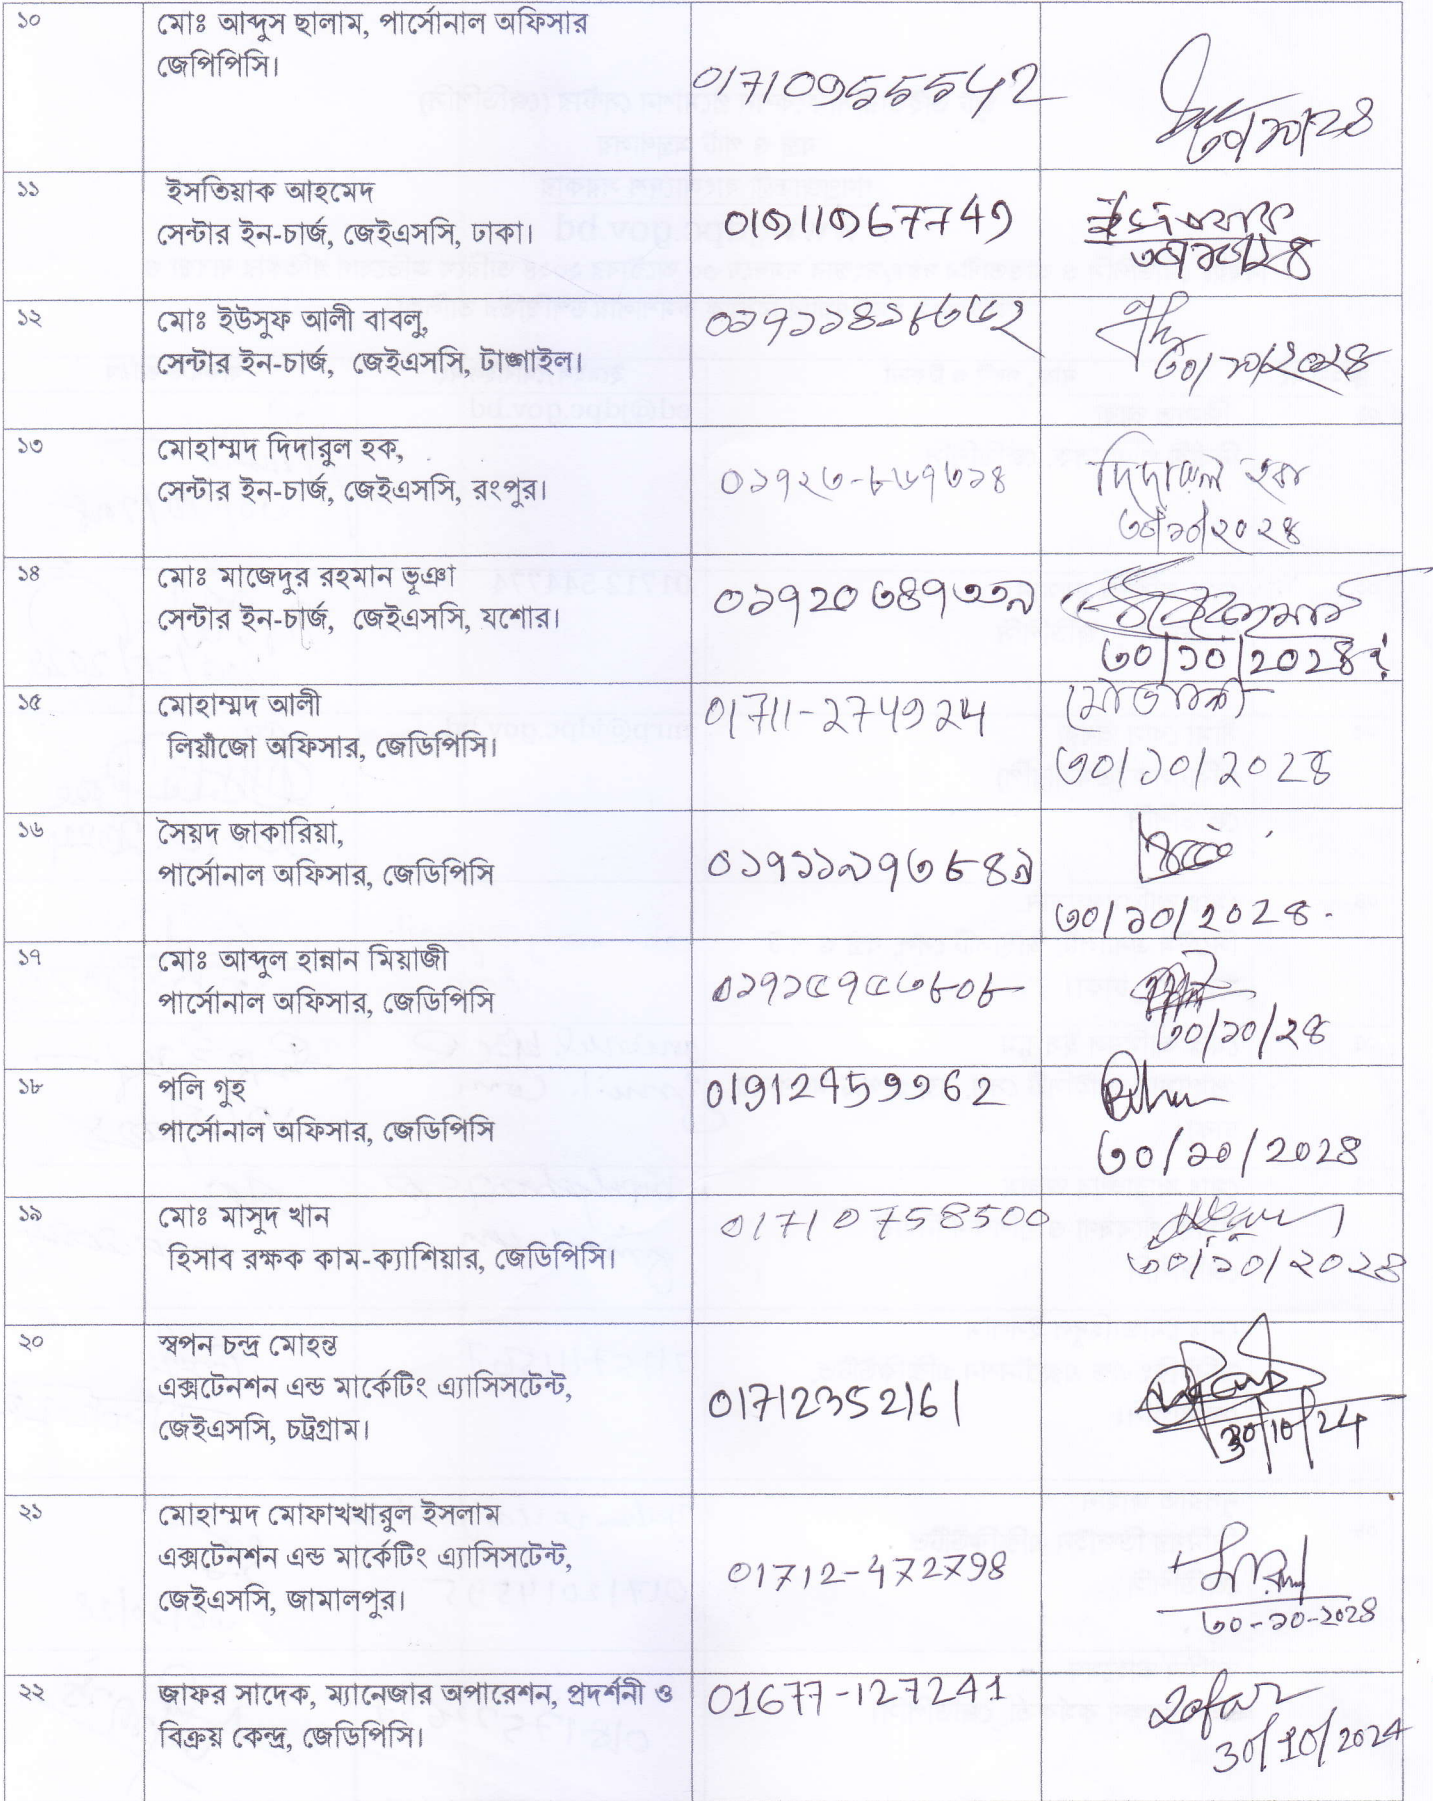 ১০
মোঃ আব্দুস ছালাম, পার্সোনাল অফিসার
জেপিপিসি।
01710955542
৩০/১০/২৪
১১
ইসতিয়াক আহমেদ
সেন্টার ইন-চার্জ, জেইএসসি, ঢাকা।
৩০/১০/২৪
১২
মোঃ ইউসুফ আলী বাবলু,
সেন্টার ইন-চার্জ, জেইএসসি, টাঙ্গাইল।
৩০/১০/২০২৪
১৩
মোহাম্মদ দিদারুল হক,
সেন্টার ইন-চার্জ, জেইএসসি, রংপুর।
০১৭২৩-৮৬৭৩১৪
দিদারুল হক
৩০/১০/২০২৪
১৪
মোঃ মাজেদুর রহমান ভূঞা
সেন্টার ইন-চার্জ, জেইএসসি, যশোর।
০১৭২০৩৪৭৩৩৯
৩০/১০/২০২৪
১৫
মোহাম্মদ আলী
লিয়াঁজো অফিসার, জেডিপিসি।
01711-274924
৩০/১০/২০২৪
১৬
সৈয়দ জাকারিয়া,
পার্সোনাল অফিসার, জেডিপিসি
০১৭১১৯৭৩৮৪৯
৩০/১০/২০২৪
১৭
মোঃ আব্দুল হান্নান মিয়াজী
পার্সোনাল অফিসার, জেডিপিসি
০১৭১৫৭৫৩৮০৮
৩০/১০/২৪
১৮
পলি গুহ
পার্সোনাল অফিসার, জেডিপিসি
01912459962
৩০/১০/২০২৪
১৯
মোঃ মাসুদ খান
হিসাব রক্ষক কাম-ক্যাশিয়ার, জেডিপিসি।
01710758500
৩০/১০/২০২৪
২০
স্বপন চন্দ্র মোহন্ত
এক্সটেনশন এন্ড মার্কেটিং এ্যাসিসটেন্ট,
জেইএসসি, চট্রগ্রাম।
01712352161
30/10/24
২১
মোহাম্মদ মোফাখখারুল ইসলাম
এক্সটেনশন এন্ড মার্কেটিং এ্যাসিসটেন্ট,
জেইএসসি, জামালপুর।
01712-472798
৩০-১০-২০২৪
২২
জাফর সাদেক, ম্যানেজার অপারেশন, প্রদর্শনী ও
বিক্রয় কেন্দ্র, জেডিপিসি।
01677-127241
30/10/2024